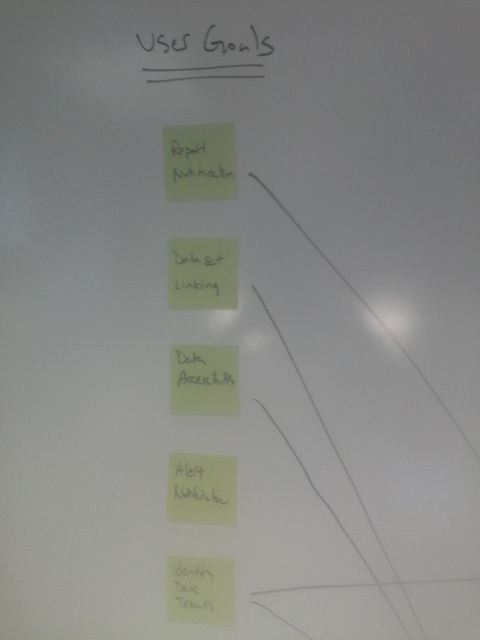 User Goals
Report
Notification
Dataset
Linking
Data
Accessibility
Alert
Notification
Identify
Data
Trends